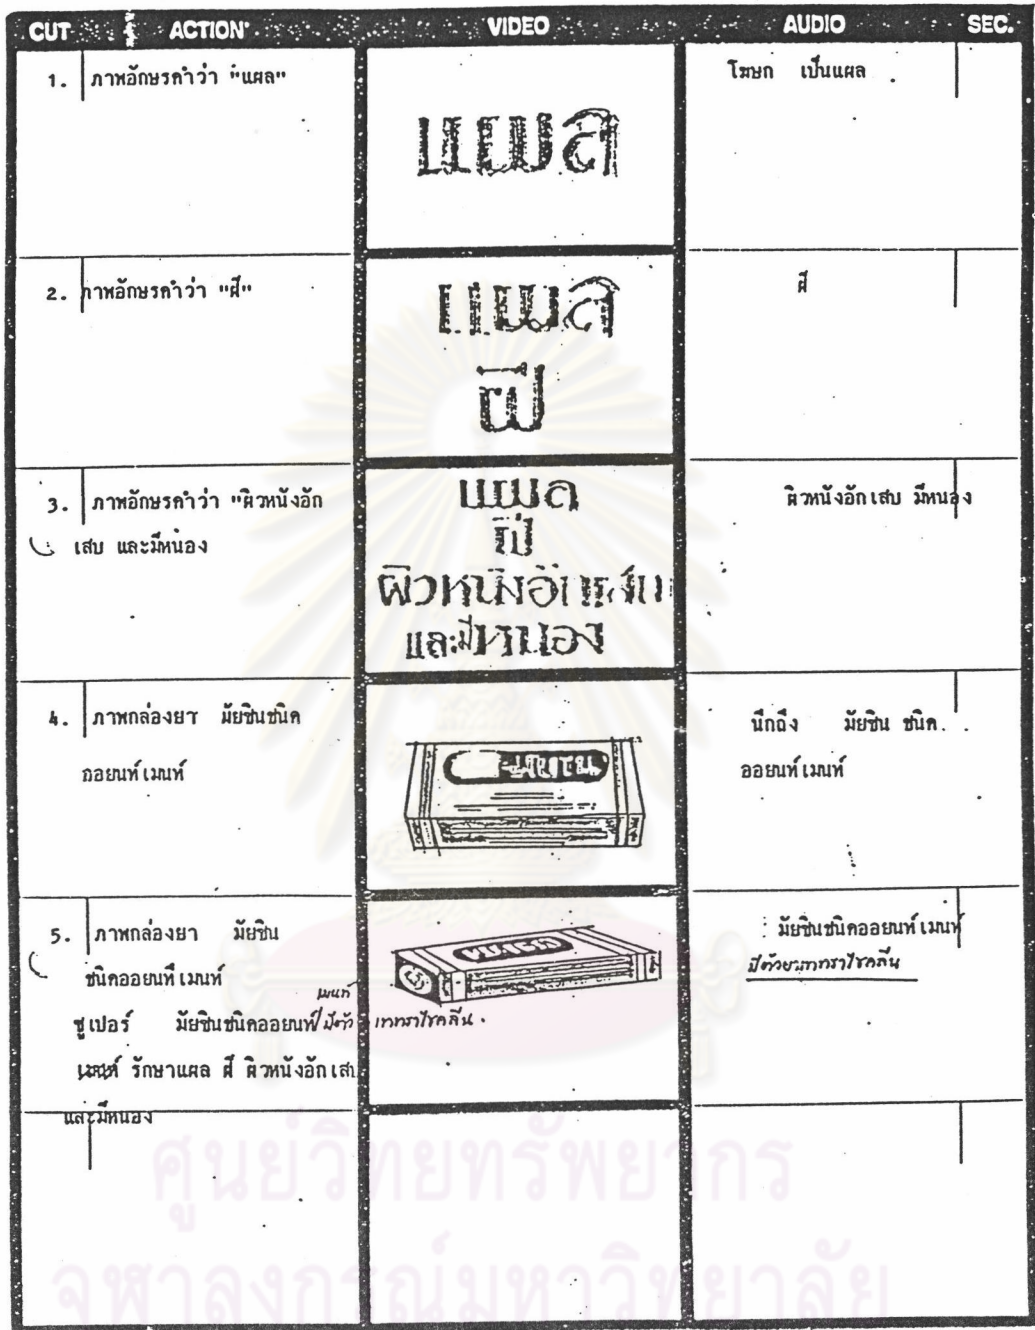 CUT ACTION VIDEO AUDIO SEC.
1. ภาพอักษรคำว่า "แผล"
แผล
โฆษก เป็นแผล
2. ภาพอักษรคำว่า "ฝี"
แผล
ฝี
ฝี
3. ภาพอักษรคำว่า "ผิวหนังอัก
เสบ และมีหนอง
แผล
ฝี
ผิวหนังอักเสบ
และมีหนอง
ผิวหนังอักเสบ มีหนอง
4. ภาพกล่องยา มัยซินชนิด
ออยนท์เมนท์
นึกถึง มัยซิน ชนิด
ออยนท์เมนท์
5. ภาพกล่องยา มัยซิน
ชนิดออยนท์เมนท์
ซูเปอร์ มัยซินชนิดออยนท์
เมนท์ มีตัว เตตราไซคลีน
เมนท์ รักษาแผล ฝี ผิวหนังอักเสบ
และมีหนอง
มัยซินชนิดออยนท์เมนท์
ศูนย์วิทยทรัพยากร
จุฬาลงกรณ์มหาวิทยาลัย